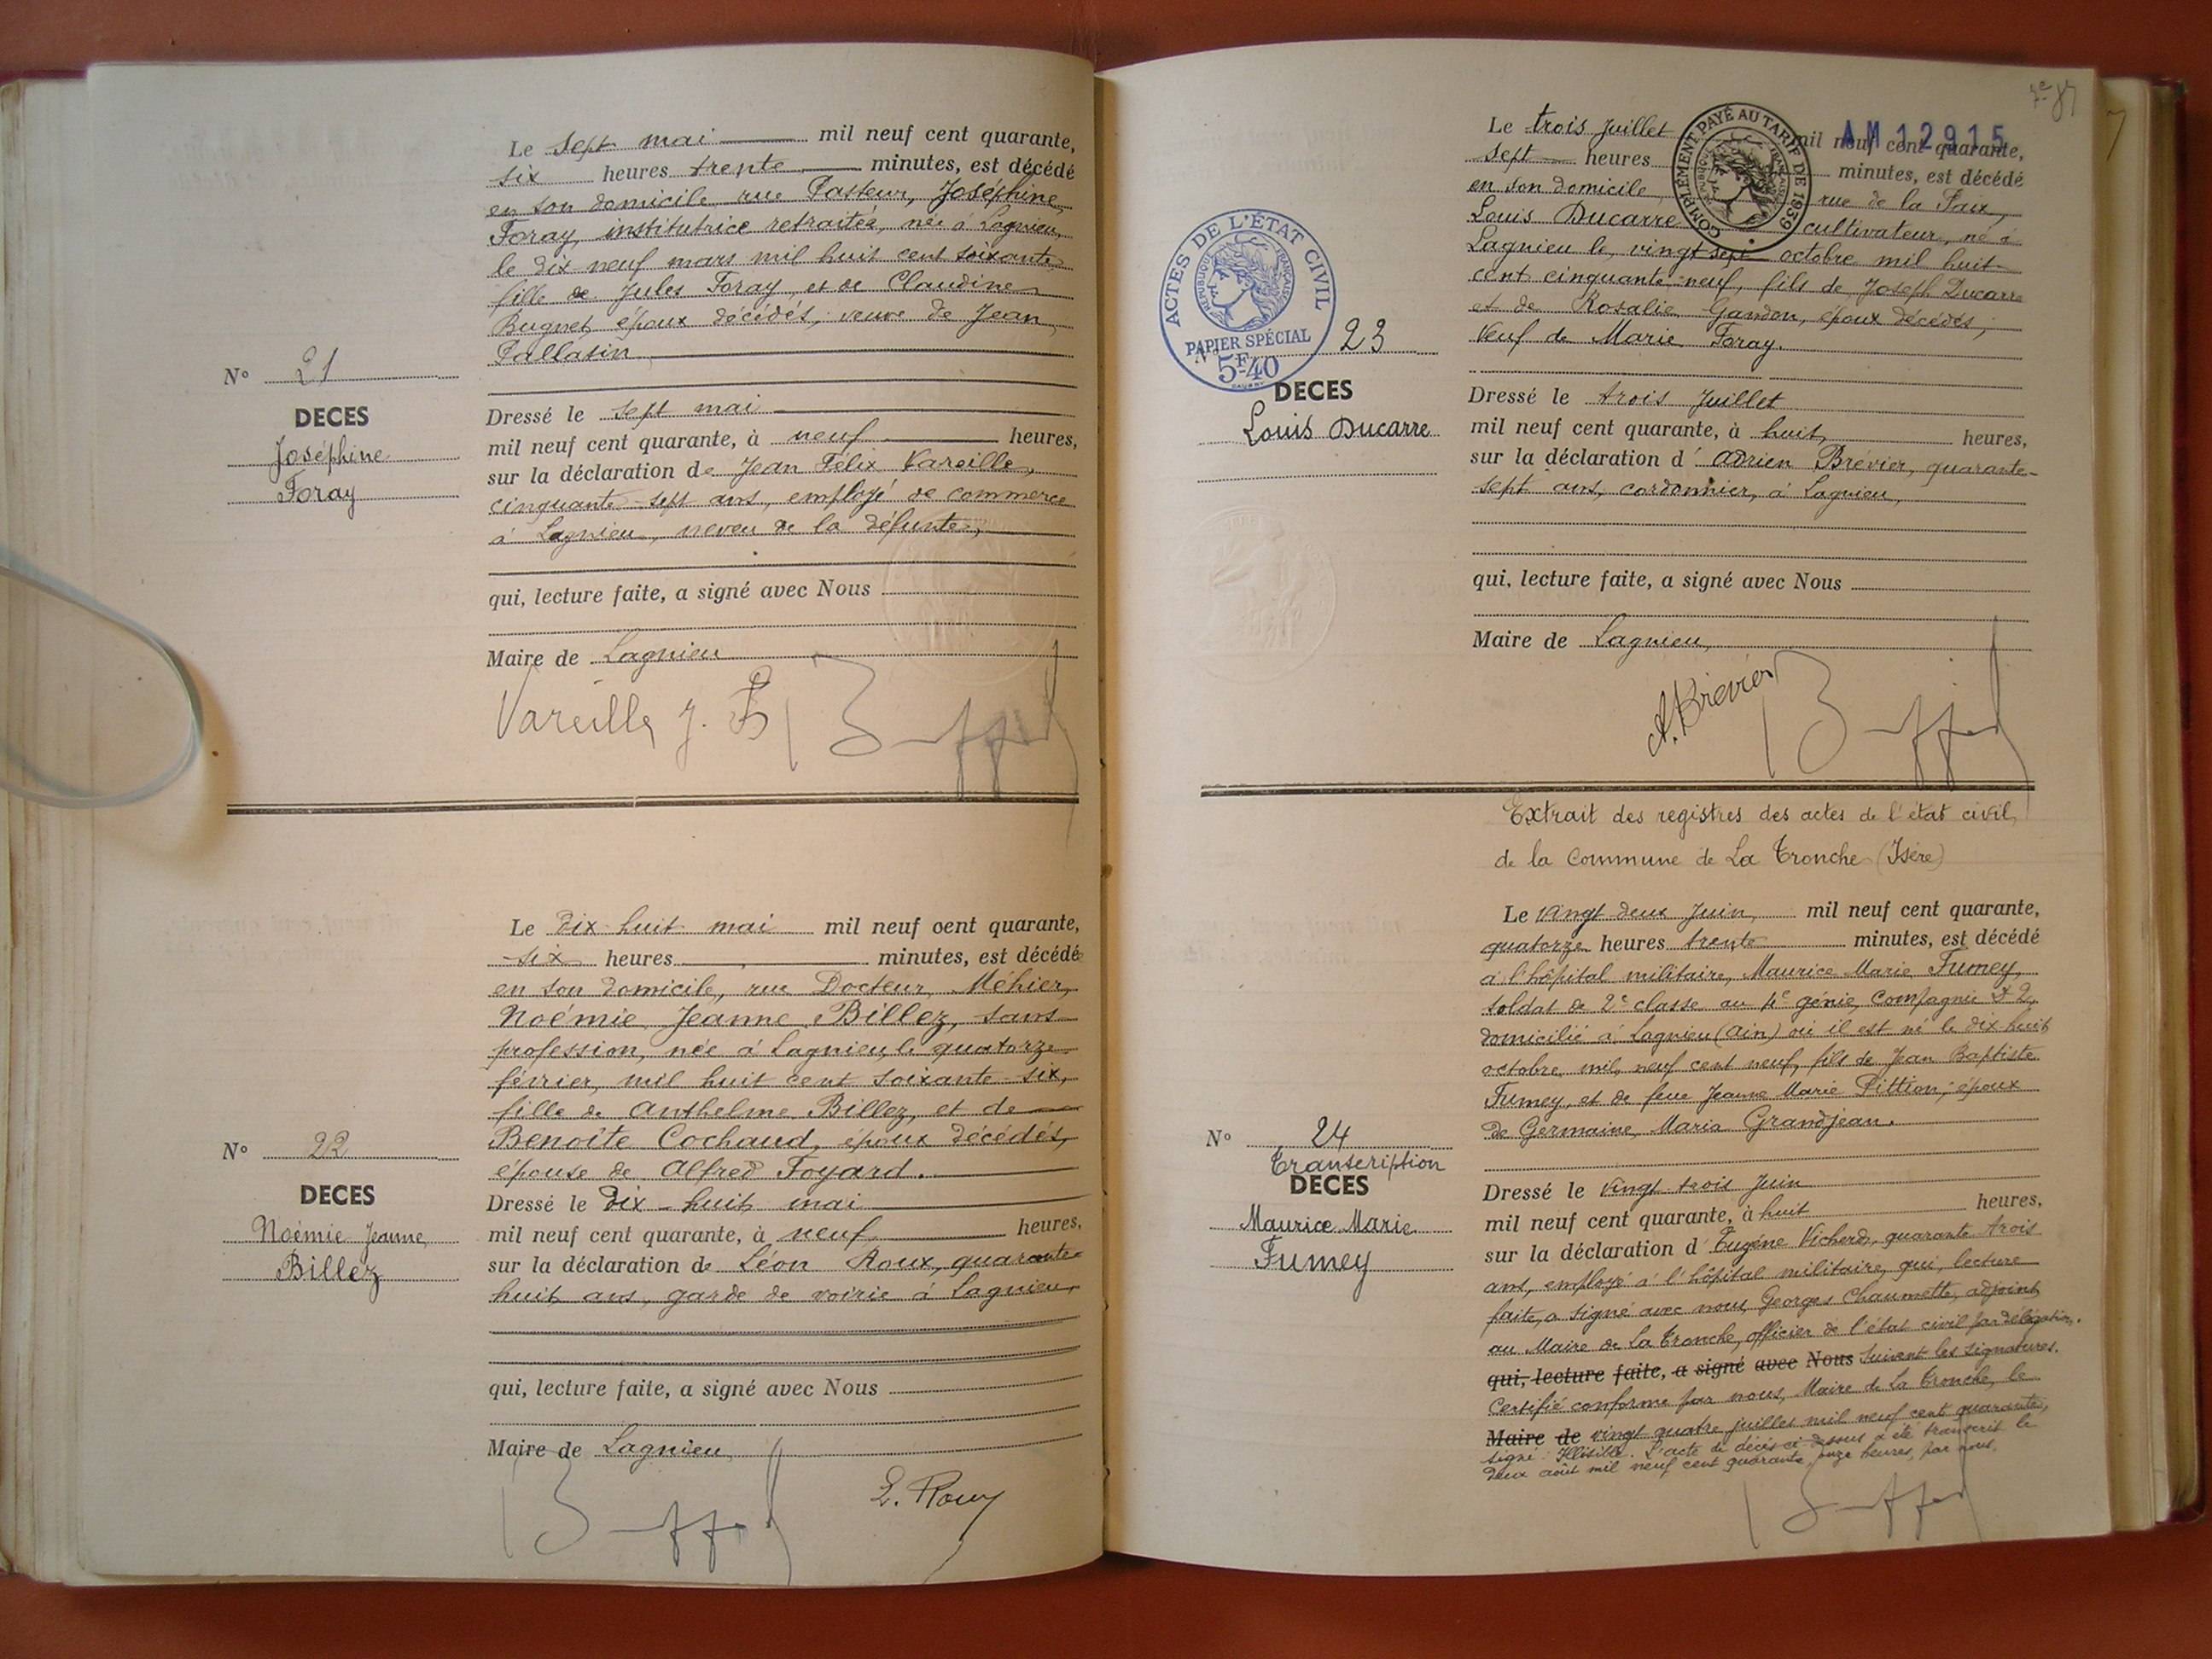 Le sept mai mil neuf cent quarante,
six heures trente minutes, est décédé
en son domicile rue Pasteur, Joséphine
Foray, institutrice retraitée, née à Lagnieu
le dix neuf mars mil huit cent soixante
fille de Jules Foray, et de Claudine
Bugnet, époux décédés; veuve de Jean
Pallasin
N° 21
DECES
Joséphine
Foray
Dressé le sept mai
mil neuf cent quarante, à neuf heures,
sur la déclaration de Jean Félix Vareille,
cinquante-sept ans, employé de commerce
à Lagnieu, neveu de la défunte,
qui, lecture faite, a signé avec Nous
Maire de Lagnieu
Vareille J. F
Le dix huit mai mil neuf cent quarante,
six heures minutes, est décédé
en son domicile, rue Docteur Méhier,
Noémie Jeanne Billez, sans
profession, née à Lagnieu le quatorze
février, mil huit cent soixante-six,
fille de Anthelme Billez, et de
Benoîte Cochaud, époux décédés,
épouse de Alfred Foyard.
N° 22
DECES
Noémie Jeanne
Billez
Dressé le Dix-huit mai
mil neuf cent quarante, à neuf heures,
sur la déclaration de Léon Roux, quarante
huit ans, garde de voirie à Lagnieu,
qui, lecture faite, a signé avec Nous
Maire de Lagnieu
L. Roux
AM 12915
Le trois Juillet mil neuf cent quarante,
sept heures minutes, est décédé
en son domicile, rue de la Paix,
Louis Ducarre cultivateur, né à
Lagnieu le vingt sept octobre mil huit
cent cinquante-neuf, fils de Joseph Ducarre
et de Rosalie Gandon, époux décédés;
Veuf de Marie Foray.
COMPLÉMENT PAYÉ AU TARIF DE 1939
ACTES DE L'ÉTAT CIVIL
RÉPUBLIQUE FRANÇAISE
PAPIER SPÉCIAL
5F40
N° 23
DECES
Louis Ducarre
Dressé le trois Juillet
mil neuf cent quarante, à huit heures,
sur la déclaration d' Adrien Brévier, quarante-
sept ans, cordonnier, à Lagnieu,
qui, lecture faite, a signé avec Nous
Maire de Lagnieu,
A. Brévier
Extrait des registres des actes de l'état civil
de la Commune de La Tronche (Isère)
Le Vingt-deux Juin mil neuf cent quarante,
quatorze heures trente minutes, est décédé
à l'hôpital militaire, Maurice Marie Fumey,
soldat de 2e classe au 4e génie, Compagnie 2,
domicilié à Lagnieu (Ain) où il est né le dix-huit
octobre mil neuf cent neuf, fils de Jean Baptiste
Fumey, et de feue Jeanne Marie Pittion; époux
de Germaine Maria Grandjean.
N° 24
Transcription
DECES
Maurice Marie
Fumey
Dressé le vingt-trois Juin
mil neuf cent quarante, à huit heures,
sur la déclaration d' Eugène Vicherd, quarante trois
ans, employé à l'hôpital militaire, qui, lecture
faite, a signé avec nous, Georges Chaumette, adjoint
au Maire de La Tronche, officier de l'état civil par délégation.
qui, lecture faite, a signé avec Nous Suivent les signatures.
Certifié conforme par nous, Maire de La Tronche, le
Maire de vingt quatre juillet mil neuf cent quarante,
signé: Illisible. L'acte de décès ci-dessus a été transcrit le
deux août mil neuf cent quarante, onze heures, par nous,